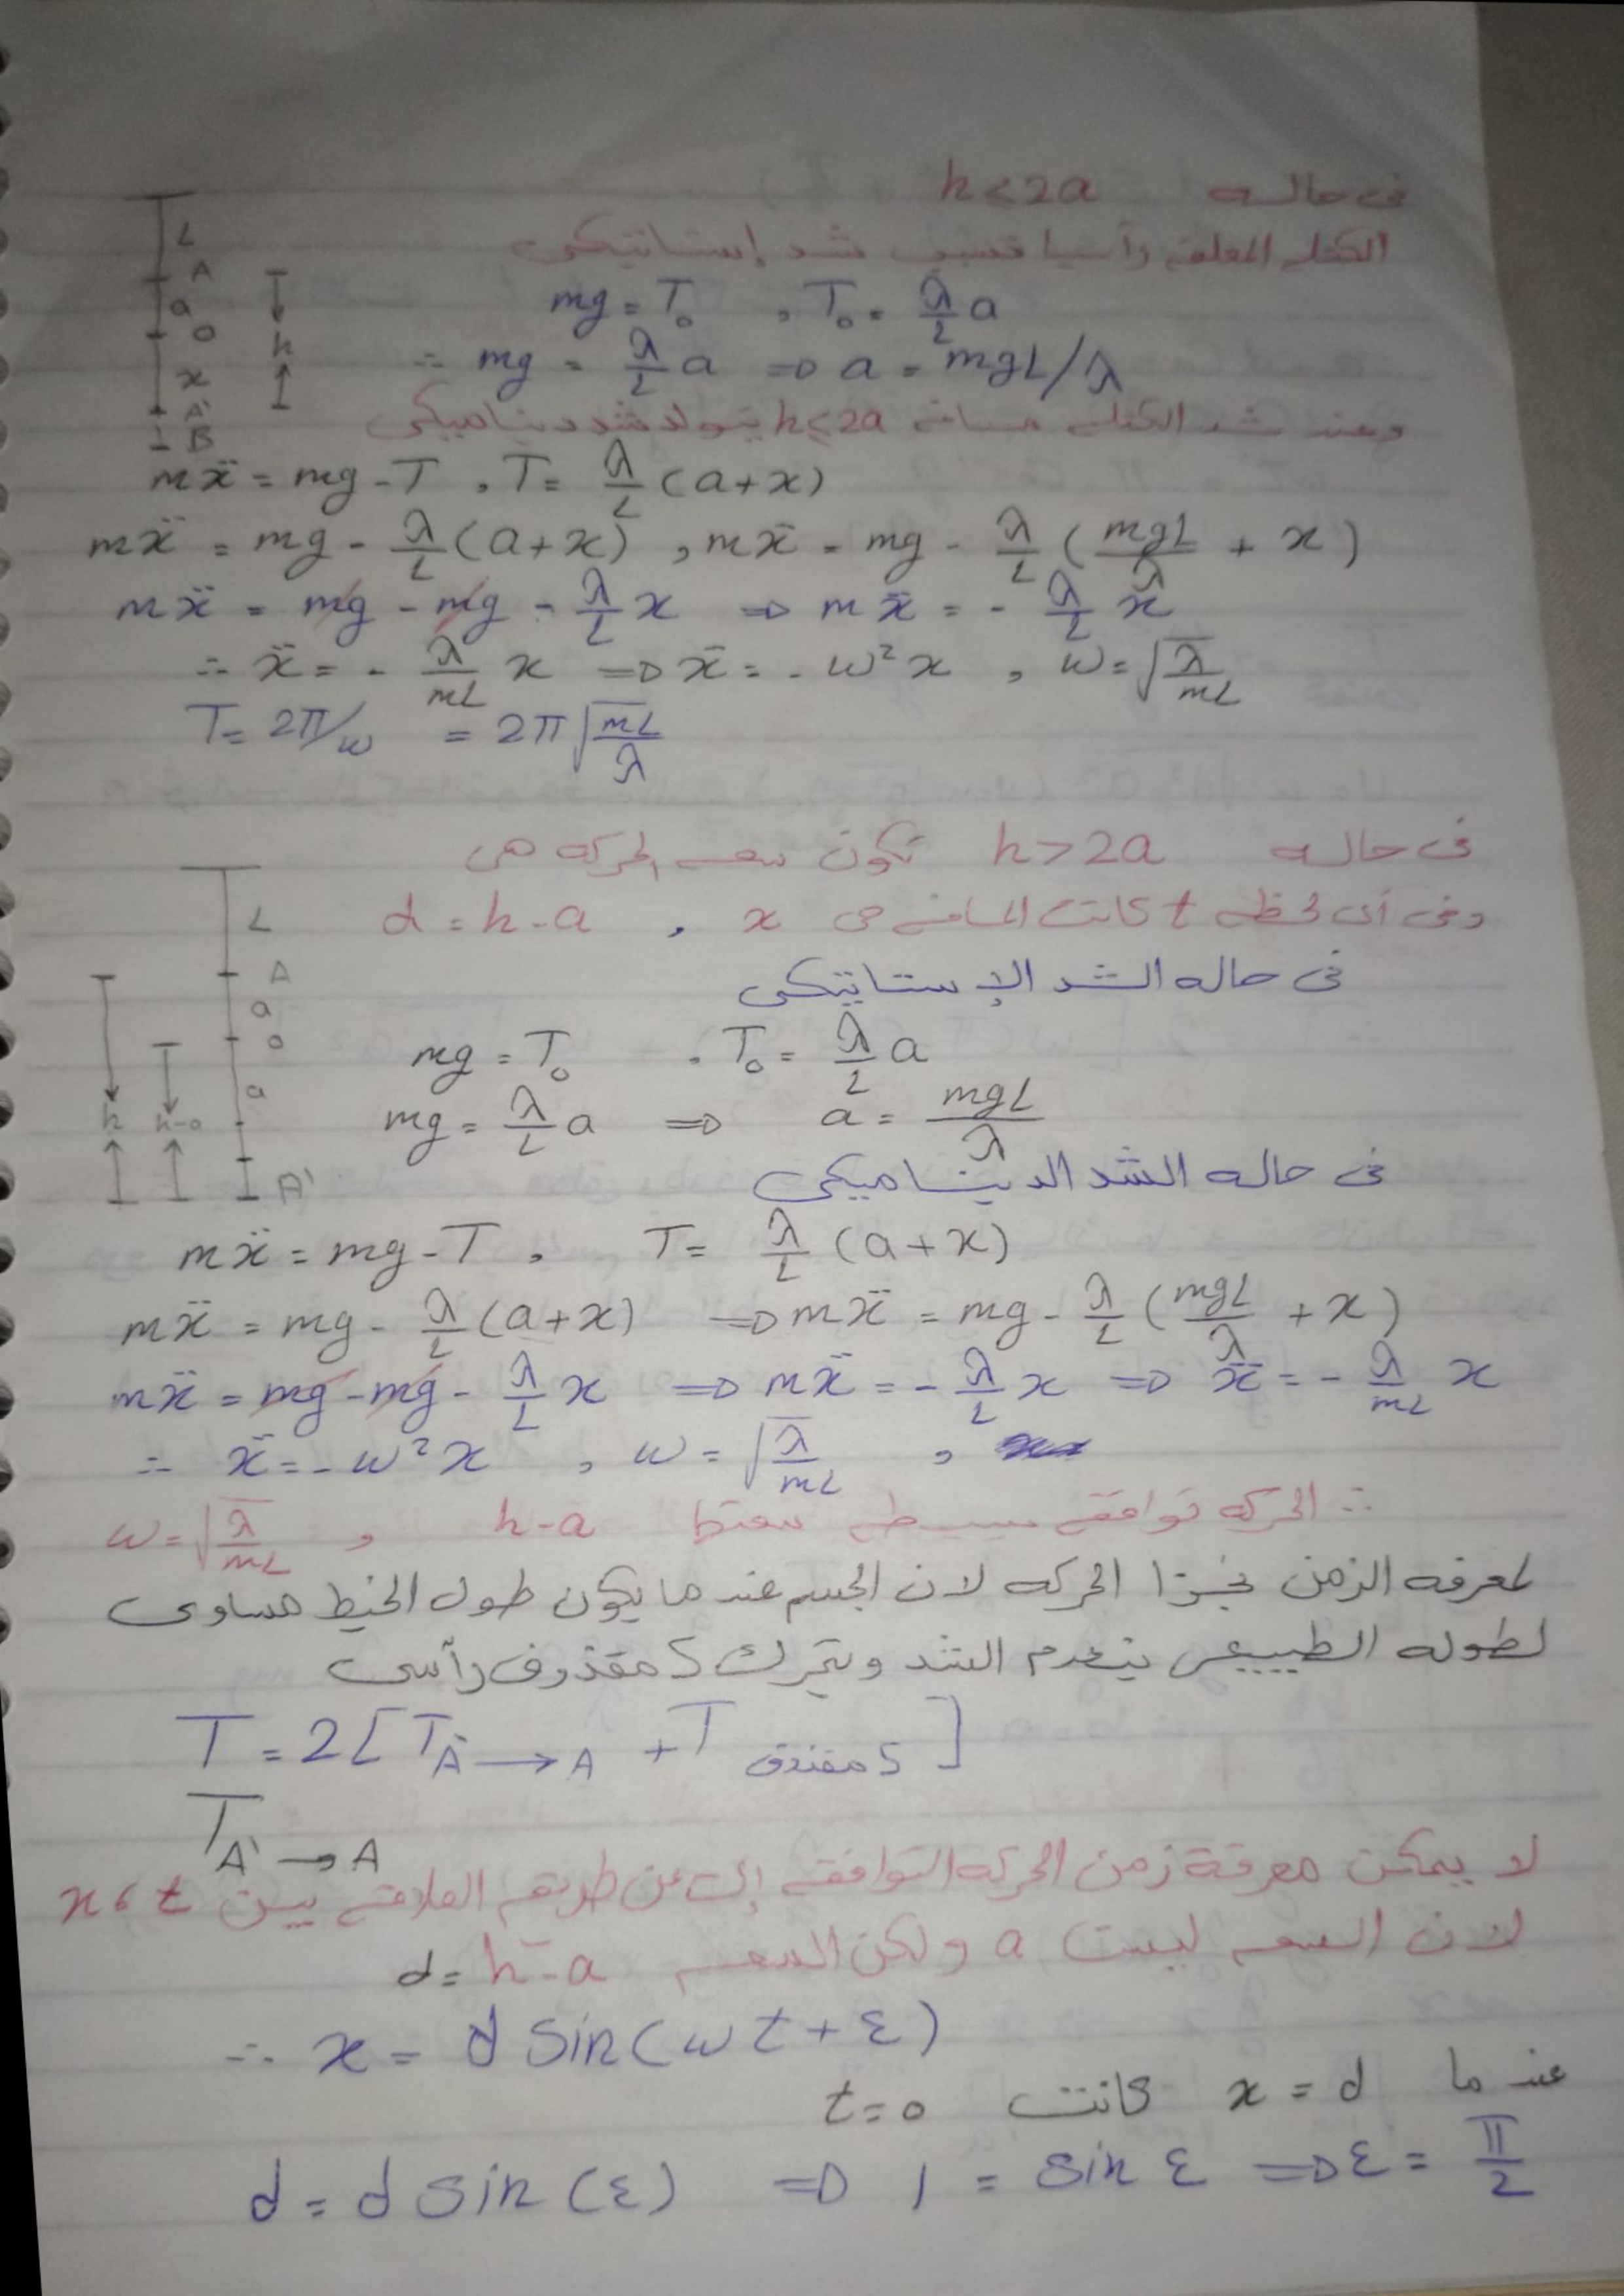 فى حاله h < 2a
الكتله المعلقه رأسيا تسبب شد إستاتيكى
mg = T₀ , T₀ = λ/L a
∴ mg = λ/L a ⇒ a = mgL/λ
وعند شد الكتله مسافه h ≤ 2a يتولد شد ديناميكى
L
A
a
O
x
A'
B
h
mẍ = mg - T , T = λ/L (a+x)
mẍ = mg - λ/L (a+x) , mẍ = mg - λ/L (mgL/λ + x)
mẍ = mg - mg - λ/L x ⇒ mẍ = - λ/L x
∴ ẍ = - λ/mL x ⇒ ẍ = - ω² x , ω = √(λ/mL)
T = 2π/ω = 2π √(mL/λ)
فى حاله h > 2a تكون سعه الحركه هى
وفى أى لحظه t كانت المسافه هى x , d = h - a
فى حاله الشد الإستاتيكى
L
A
a
O
a
A'
h
h-a
mg = T₀ . T₀ = λ/L a
mg = λ/L a ⇒ a = mgL/λ
فى حاله الشد الديناميكى
mẍ = mg - T , T = λ/L (a+x)
mẍ = mg - λ/L (a+x) ⇒ mẍ = mg - λ/L (mgL/λ + x)
mẍ = mg - mg - λ/L x ⇒ mẍ = - λ/L x ⇒ ẍ = - λ/mL x
∴ ẍ = - ω² x , ω = √(λ/mL) ,
∴ الحركه توافقيه بسيطه سعتها h-a , ω = √(λ/mL)
لمعرفه الزمن نجزأ الحركه لان الجسم عند ما يكون طول الخيط مساوى
لطوله الطبيعى ينعدم الشد ويتحرك كمقذوف رأسى
T = 2[T A' → A + T كمقذوف]
T A' → A
لا يمكن معرفة زمن الحركه التوافقيه إلا عن طريق العلاقه بين x ، t
لان السعه ليست a ولكن السعه d = h - a
∴ x = d sin(ωt + ε)
عند ما x = d كانت t = 0
d = d sin(ε) ⇒ 1 = sin ε ⇒ ε = π/2